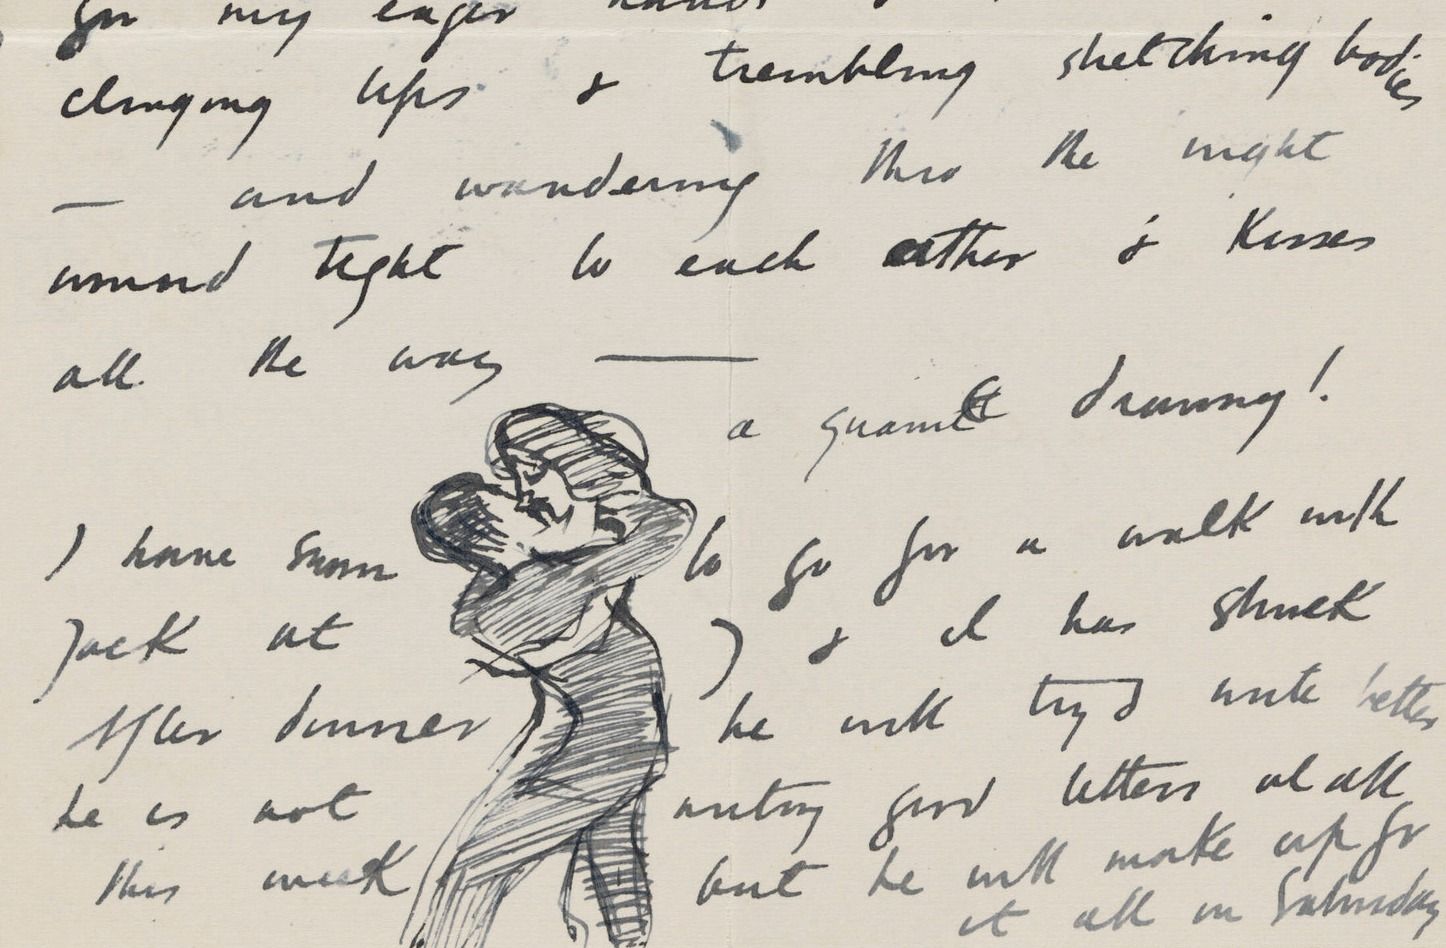 for my eager hands &
clinging lips & trembling stretching bodies
— and wandering thro the night
wound tight to each other & kisses
all the way —
a quaint drawing!
I have to go for a walk with
Jack at 7 & it has struck
After dinner he will try & write better
he is not writing good letters at all
this week but he will make up for
it all on Saturday